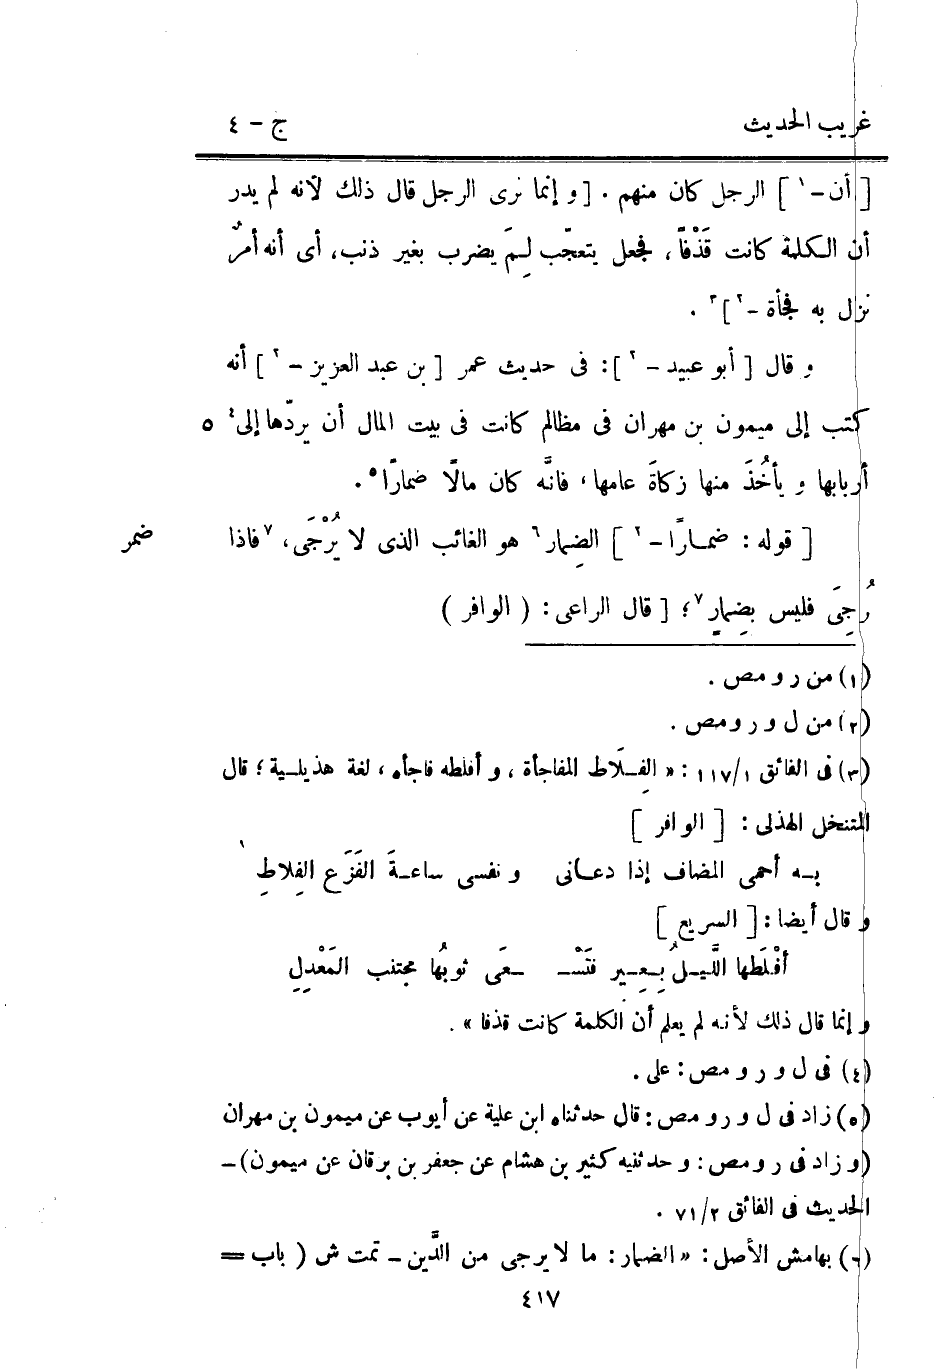 غريب الحديث ج – ٤
[ أن – ١ ] الرجل كان منهم . [ و إنما نرى الرجل قال ذلك لأنه لم يدر
أن الكلمة كانت قَذْفاً ، فجعل يتعجّب لِمَ يضرب بغير ذنب، أى أنه أمرٌ
نزل به فجأة – ٢ ] ٣ .
و قال [ أبو عبيد – ٢ ] : فى حديث عمر [ بن عبد العزيز – ٢ ] أنه
كتب إلى ميمون بن مهران فى مظالم كانت فى بيت المال أن يردّها إلى ٤ ٥
أربابها و يأخُذَ منها زكاةَ عامها ، فانَّه كان مالًا ضمارًا ٥ .
[ قوله : ضمارًا – ٢ ] الضِمار ٦ هو الغائب الذى لا يُرْجَى، ٧ فاذا ضمر
رُجِىَ فليس بضِمارٍ ٧ ؛ [ قال الراعى : ( الوافر )
(١) من ر و مص .
(٢) من ل و ر و مص .
(٣) فى الفائق ١/ ١١٧ : « الفِلَاط المفاجأة ، و أفلطه فاجأه ، لغة هذيلية ؛ قال
المتنخل الهذلى : [ الوافر ]
به أحمى المضاف إذا دعانى و نفسى ساعةَ الفَزَع الفِلاطِ
و قال أيضا : [ السريع ]
أفْلَطَها اللَّيلُ بِعِير فَتَسْـ ـعَى ثوبُها مجتنب المَعْدِلِ
و إنما قال ذلك لأنه لم يعلم أن الكلمة كانت قذفا » .
(٤) فى ل و ر و مص : على .
(٥) زاد فى ل و ر و مص : قال حدثناه ابن علية عن أيوب عن ميمون بن مهران
(و زاد فى ر و مص : و حدثنيه كثير بن هشام عن جعفر بن برقان عن ميمون) –
الحديث فى الفائق ٢/ ٧١ .
(٦) بهامش الأصل : « الضمار : ما لا يرجى من الدَّين – تمت ش ( باب =
٤١٧